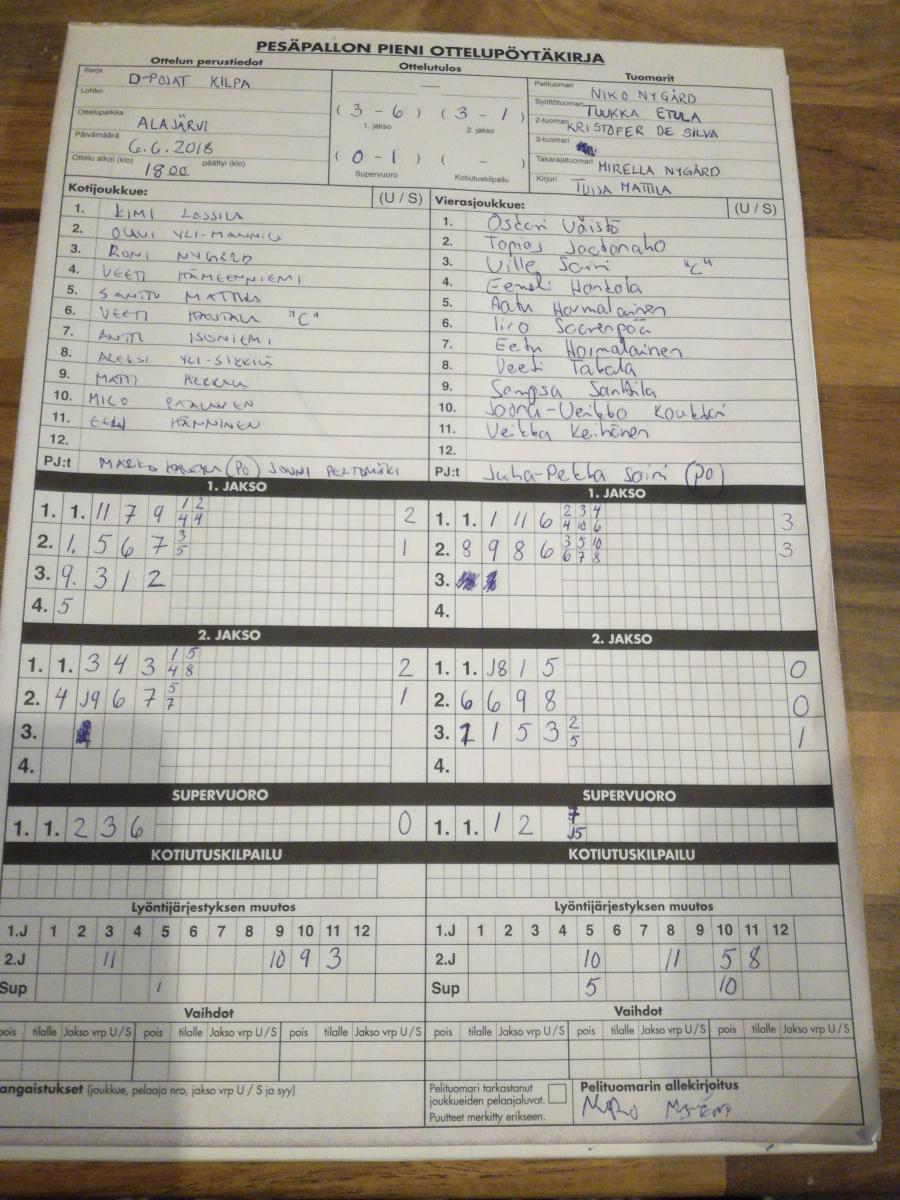 PESÄPALLON PIENI OTTELUPÖYTÄKIRJA
Ottelun perustiedot
Ottelutulos
Tuomarit
Sarja D-POJAT KILPA
Lohko
Ottelupaikka ALAJÄRVI
Päivämäärä 6.6.2018
Ottelu alkoi (klo) 18 00 päättyi (klo)
—
( 3 - 6 ) ( 3 - 1 )
1. jakso 2. jakso
( 0 - 1 ) ( - )
Supervuoro Kotiutuskilpailu
Pelituomari NIKO NYGÅRD
Syöttötuomari TUUKKA ETULA
2-tuomari KRISTOFER DE SILVA
3-tuomari
Takarajatuomari MIRELLA NYGÅRD
Kirjuri TUIJA MATTILA
Kotijoukkue: (U / S)
1. KIMI LASSILA
2. OLAVI YLI-MANNILA
3. RONI NYGÅRD
4. VEETI HÄMEENNIEMI
5. SANTTU MATTILA
6. VEETI "C"
7. ANTTI ISONIEMI
8. ALEKSI YLI-SIKKILÄ
9. MATTI
10. MICO PAALANEN
11. HÄNNINEN
12.
PJ:t MARKO (PO) JOUNI PELTOMÄKI
Vierasjoukkue: (U / S)
1. Oskari Väistö
2. Topias Jaatonaho
3. Ville Soini "C"
4. Eemeli Honkola
5. Aatu Harmalainen
6. Iiro Saarenpää
7. Eetu Harmalainen
8. Veeti Takala
9. Sampsa Santtila
10. Joona-Veikko
11. Veikka Keihänen
12.
PJ:t Juha-Pekka Soini (PO)
1. JAKSO
1. 1. 11 7 9 1 2 2
4 4
2. 1. 5 6 7 3 1
5
3. 9. 3 1 2
4. 5
1. JAKSO
1. 1. 1 11 6 2 3 4 3
4 10 6
2. 8 9 8 6 3 5 10 3
6 7 8
3.
4.
2. JAKSO
1. 1. 3 4 3 1 5 2
4 8
2. 4 J9 6 7 5 1
7
3.
4.
2. JAKSO
1. 1. J8 1 5 0
2. 6 6 9 8 0
3. 1 1 5 3 2 1
5
4.
SUPERVUORO
1. 1. 2 3 6 0
SUPERVUORO
1. 1. 1 2 7
J5
KOTIUTUSKILPAILU
KOTIUTUSKILPAILU
Lyöntijärjestyksen muutos
1.J 1 2 3 4 5 6 7 8 9 10 11 12
2.J 11 10 9 3
Sup 1
Lyöntijärjestyksen muutos
1.J 1 2 3 4 5 6 7 8 9 10 11 12
2.J 10 11 5 8
Sup 5 10
Vaihdot
pois tilalle Jakso vrp U / S pois tilalle Jakso vrp U / S pois tilalle Jakso vrp U / S
Vaihdot
pois tilalle Jakso vrp U / S pois tilalle Jakso vrp U / S pois tilalle Jakso vrp U / S
angaistukset (joukkue, pelaaja nro, jakso vrp U / S ja syy)
Pelituomari tarkastanut
joukkueiden pelaajaluvat.
Puutteet merkitty erikseen.
Pelituomarin allekirjoitus